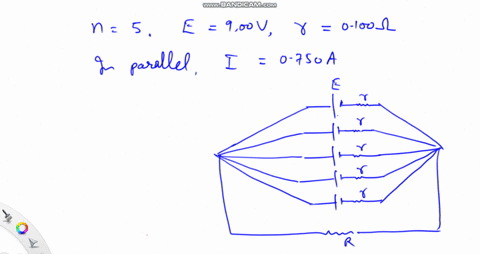 WWW.BANDICAM.COM
n = 5. E = 9.00V, r = 0.100Ω
In parallel, I = 0.750A
E
r
r
r
r
r
R